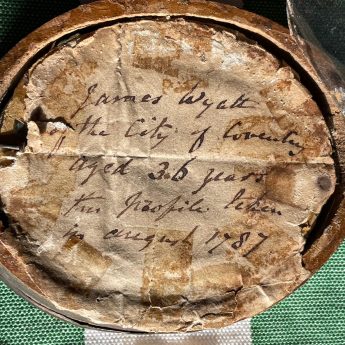 James Wyatt
of the City of Coventry
aged 36 years
this profile taken
in august 1787